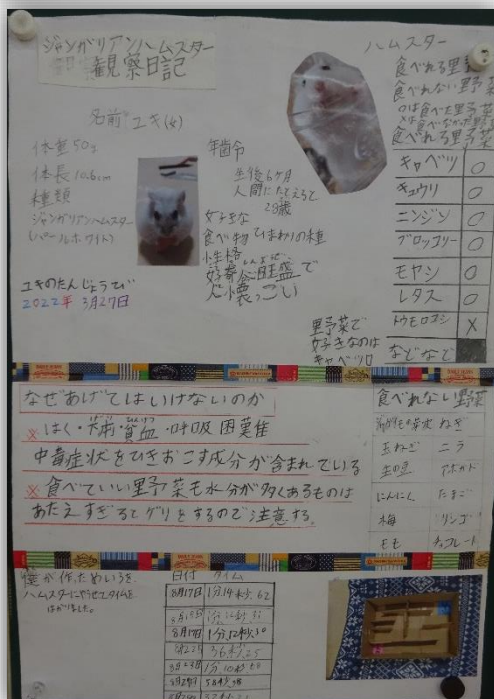 ジャンガリアンハムスター
観察日記
名前 ユキ(女)
体重 50g
体長 10.6cm
種類
ジャンガリアンハムスター
(パールホワイト)
ユキのたんじょうび
2022年 3月27日
年齢
生後6ヶ月
人間にたとえると
28歳
好きな
食べ物 ひまわりの種
性格
好奇心旺盛で
人懐っこい
ハムスター
食べれる野菜
食べれない野菜
○は食べた野菜
×は食べなかった野菜
食べれる野菜
キャベツ ○
キュウリ ○
ニンジン ○
ブロッコリー ○
モヤシ ○
レタス ○
トウモロコシ ×
などなど
野菜で
好きなのは
キャベツ
なぜあげてはいけないのか
※はく・貧血・呼吸困難
中毒症状をひきおこす成分が含まれている
※食べていい野菜も水分が多くあるものは
あたえすぎるとゲリをするので注意する。
食べれない野菜
ねぎ
玉ねぎ ニラ
アボカド
にんにく たまご
梅 リンゴ
モモ チョコレート
僕が作っためいろを
ハムスターにやらせてタイムを
はかりました。
日付 タイム
8月17日 1分14秒62
8月19日 1分12秒30